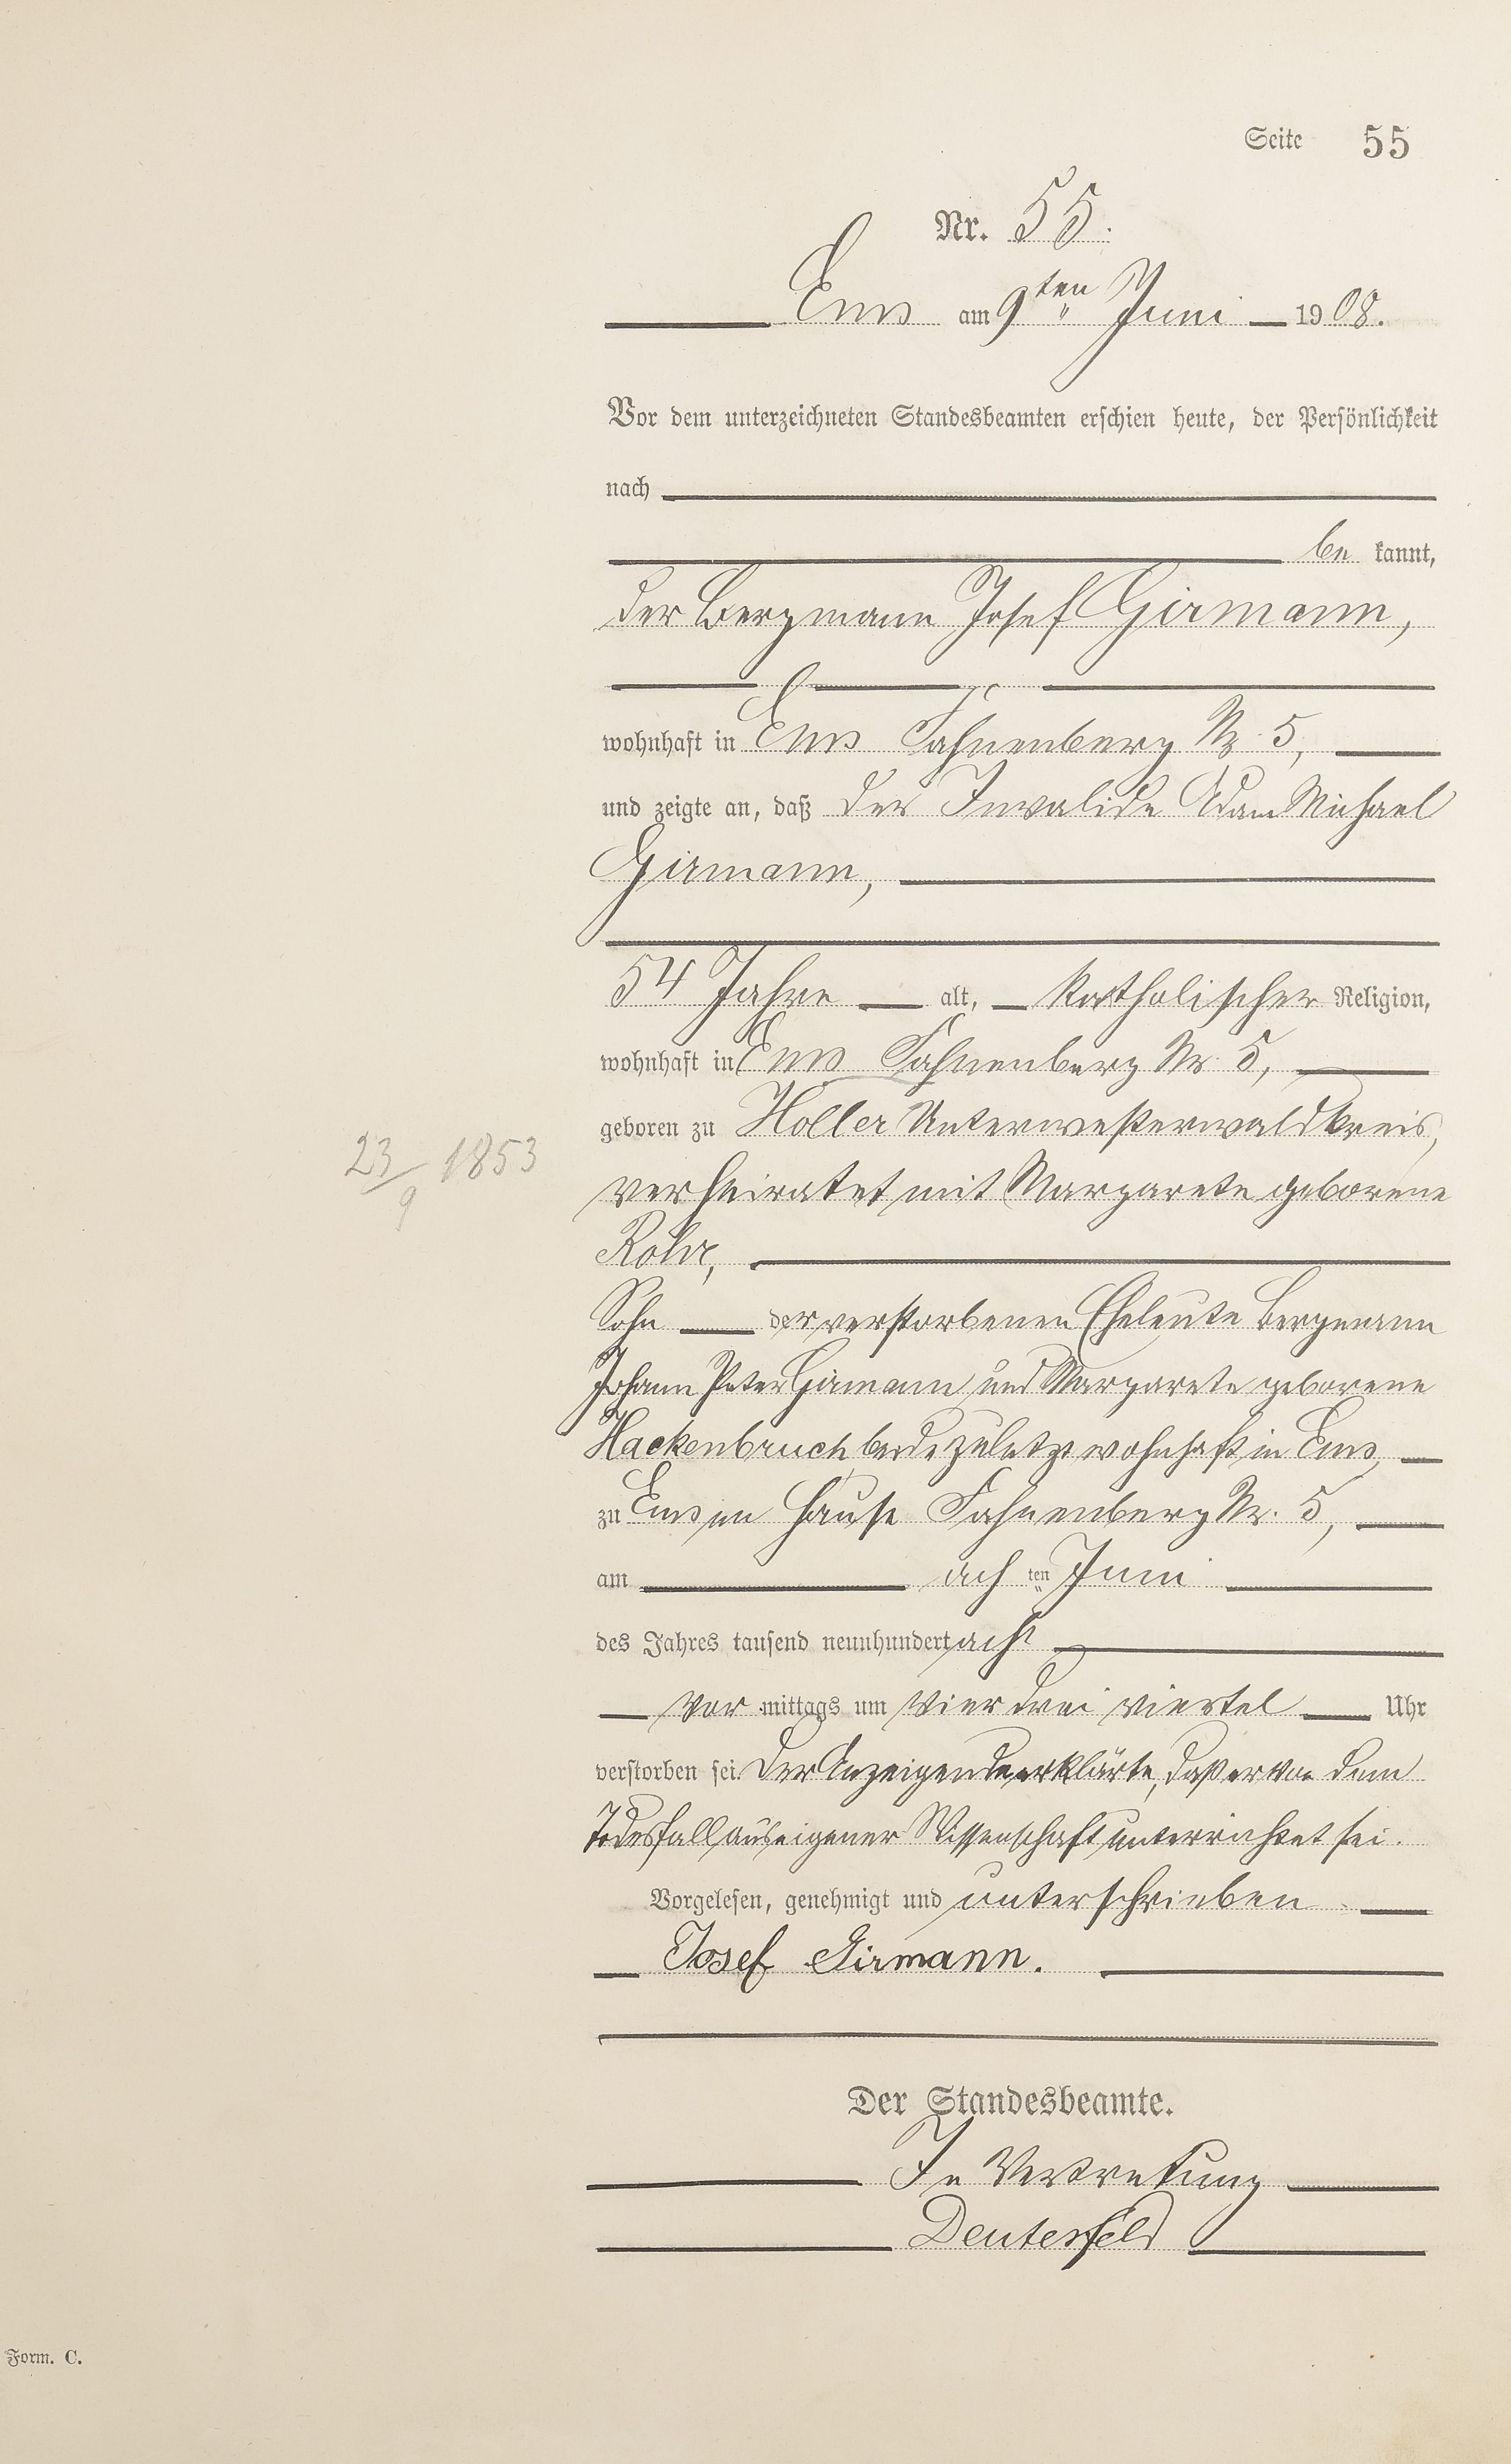 Seite 55
Nr. 55.
Ems am 9ten Juni 1908.
Vor dem unterzeichneten Standesbeamten erschien heute, der Persönlichkeit
nach
be kannt,
der Bergmann Josef Girmann,
wohnhaft in Ems Fahnenberg Nr. 5,
und zeigte an, daß der Invalide Adam Michael
Girmann,
54 Jahre alt, katholischer Religion,
wohnhaft in Ems Fahnenberg Nr. 5,
geboren zu Holler Unterwesterwaldkreis,
23/9 1853
verheiratet mit Margarete geborene
Röhr,
Sohn der verstorbenen Eheleute Bergmann
Johann Peter Girmann und Margarete geborene
Hackenbruch beide zuletzt wohnhaft in Ems,
zu Ems im Hause Fahnenberg Nr. 5,
am achten Juni
des Jahres tausend neunhundert acht
Vor mittags um vier drei viertel Uhr
verstorben sei. Der Anzeigende erklärte, daß er von dem
Todesfall aus eigener Wissenschaft unterrichtet sei.
Vorgelesen, genehmigt und unterschrieben
Josef Girmann.
Der Standesbeamte.
In Vertretung
Deutesfeld
Form. C.